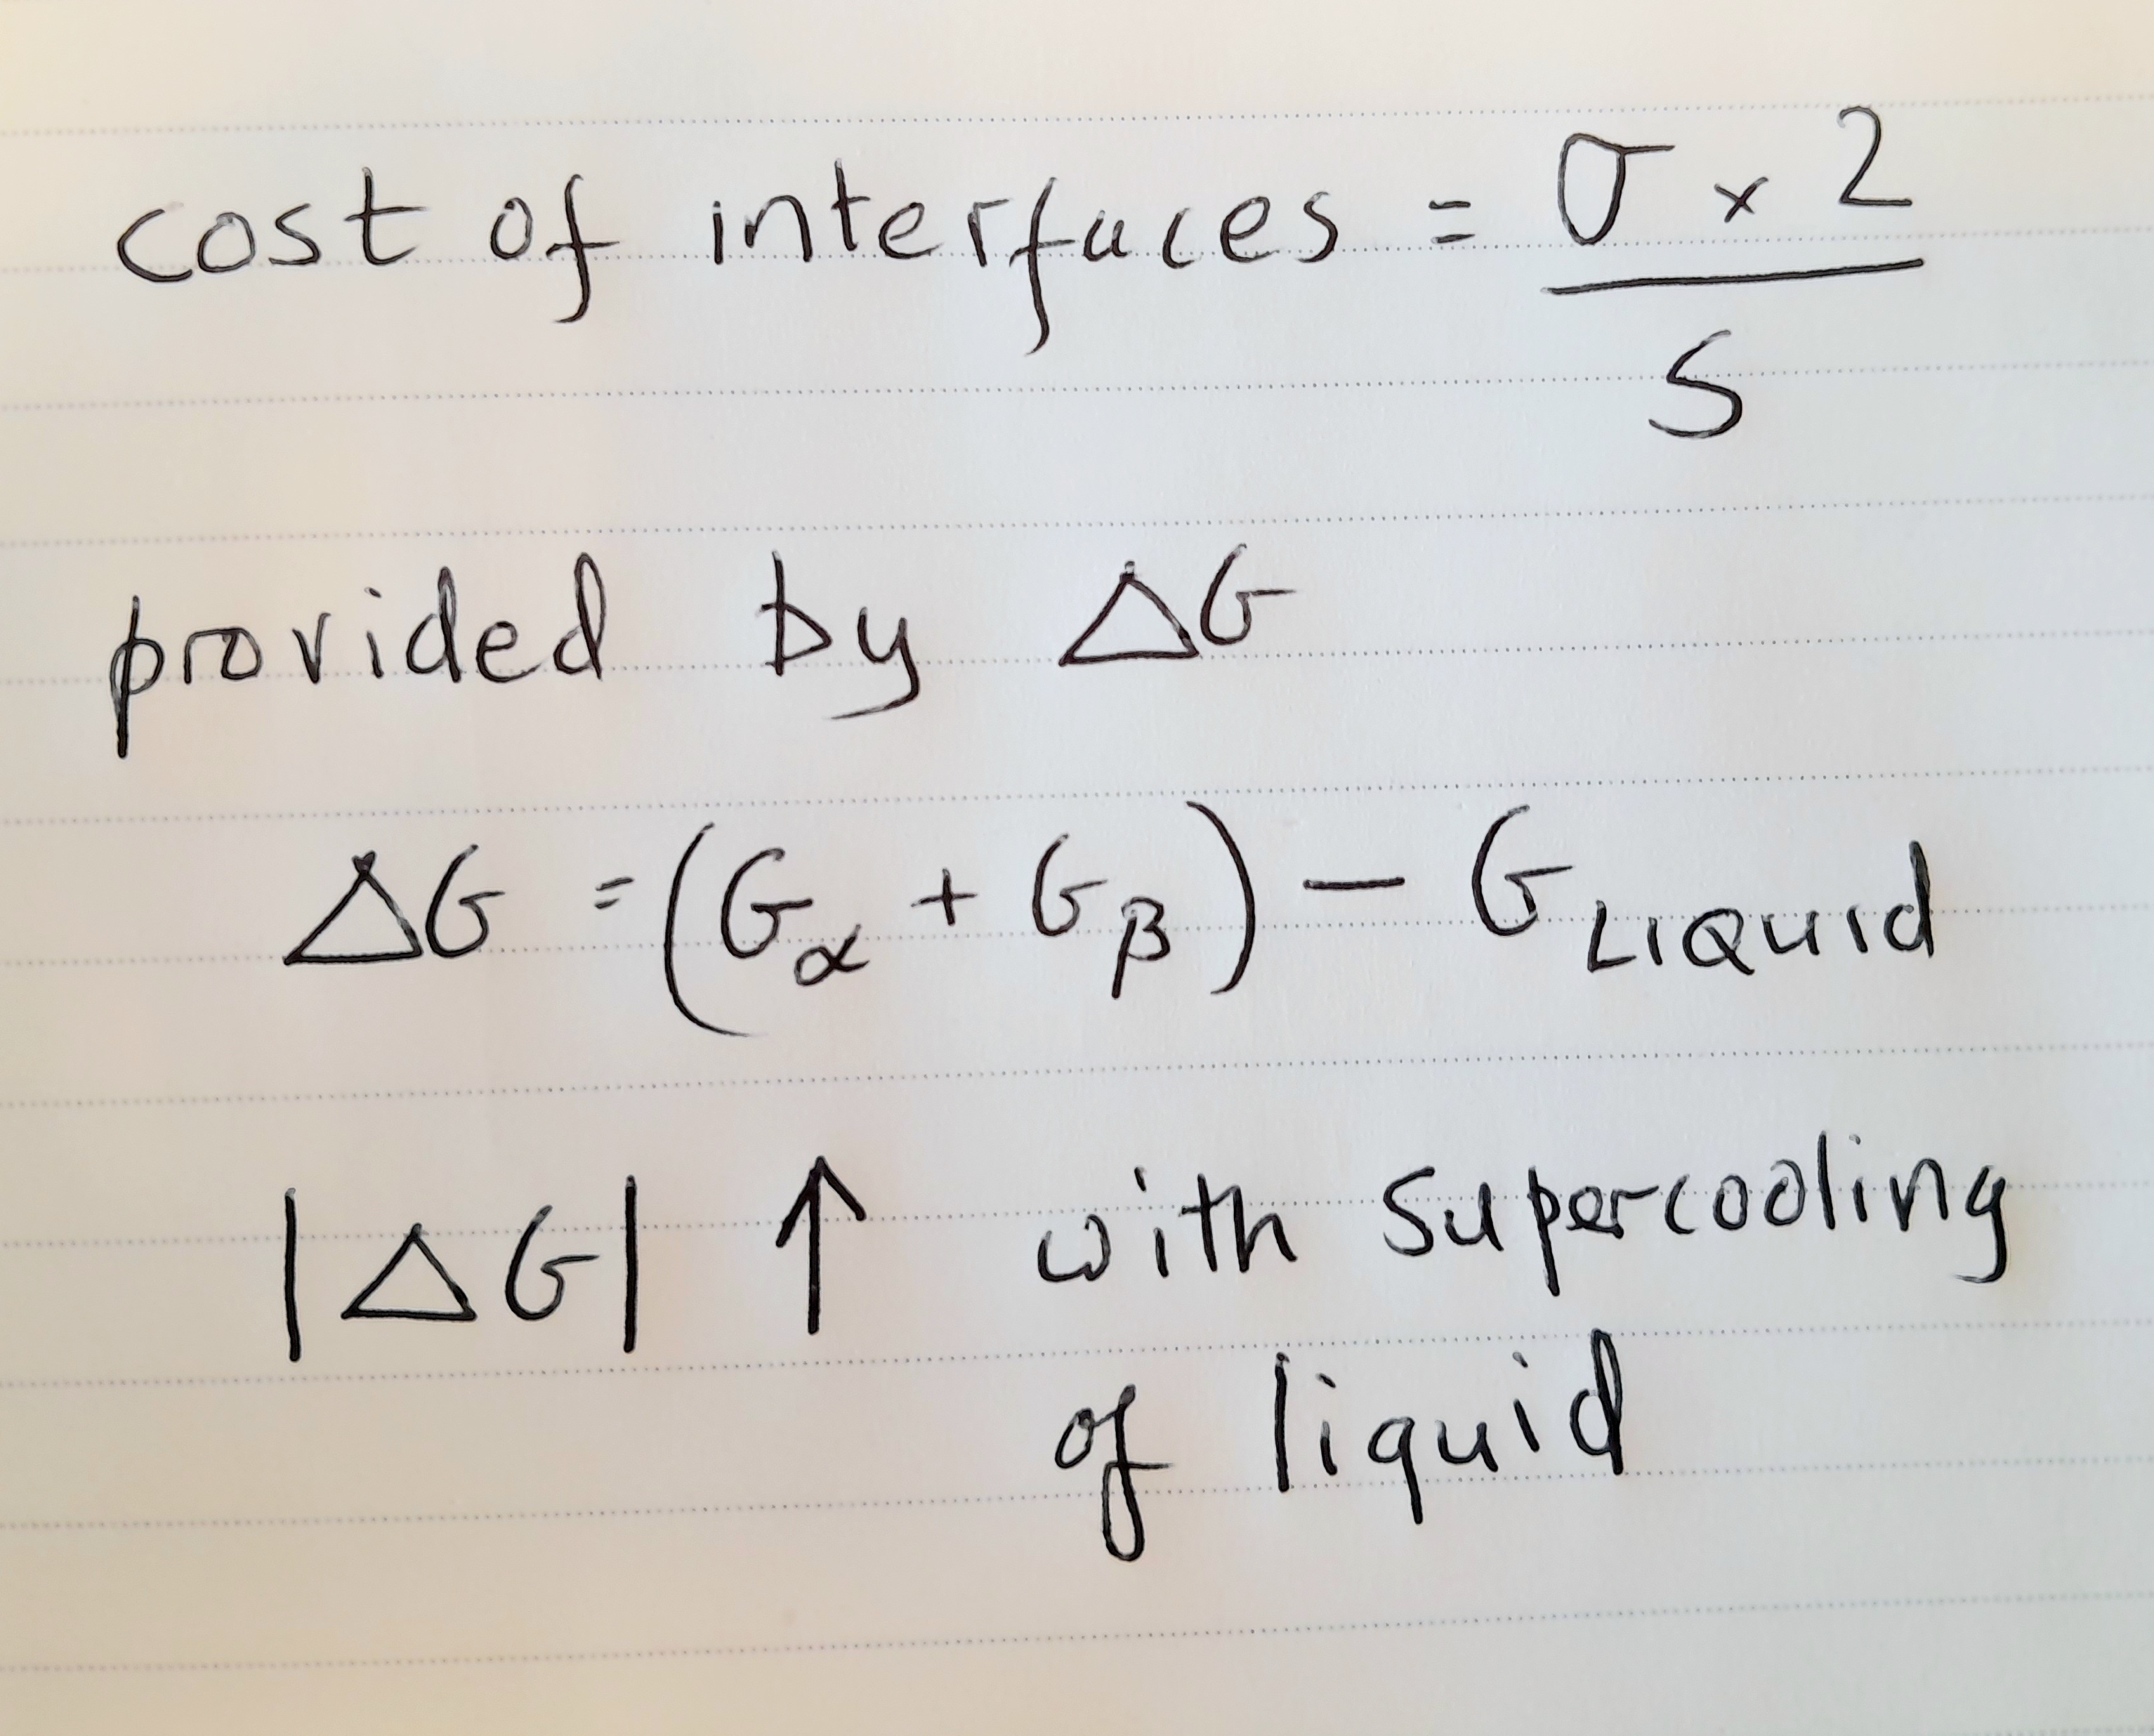 cost of interfaces = σ × 2 / S
provided by ΔG
ΔG = (Gα + Gβ) − G LIQuid
|ΔG| ↑ with supercooling
of liquid